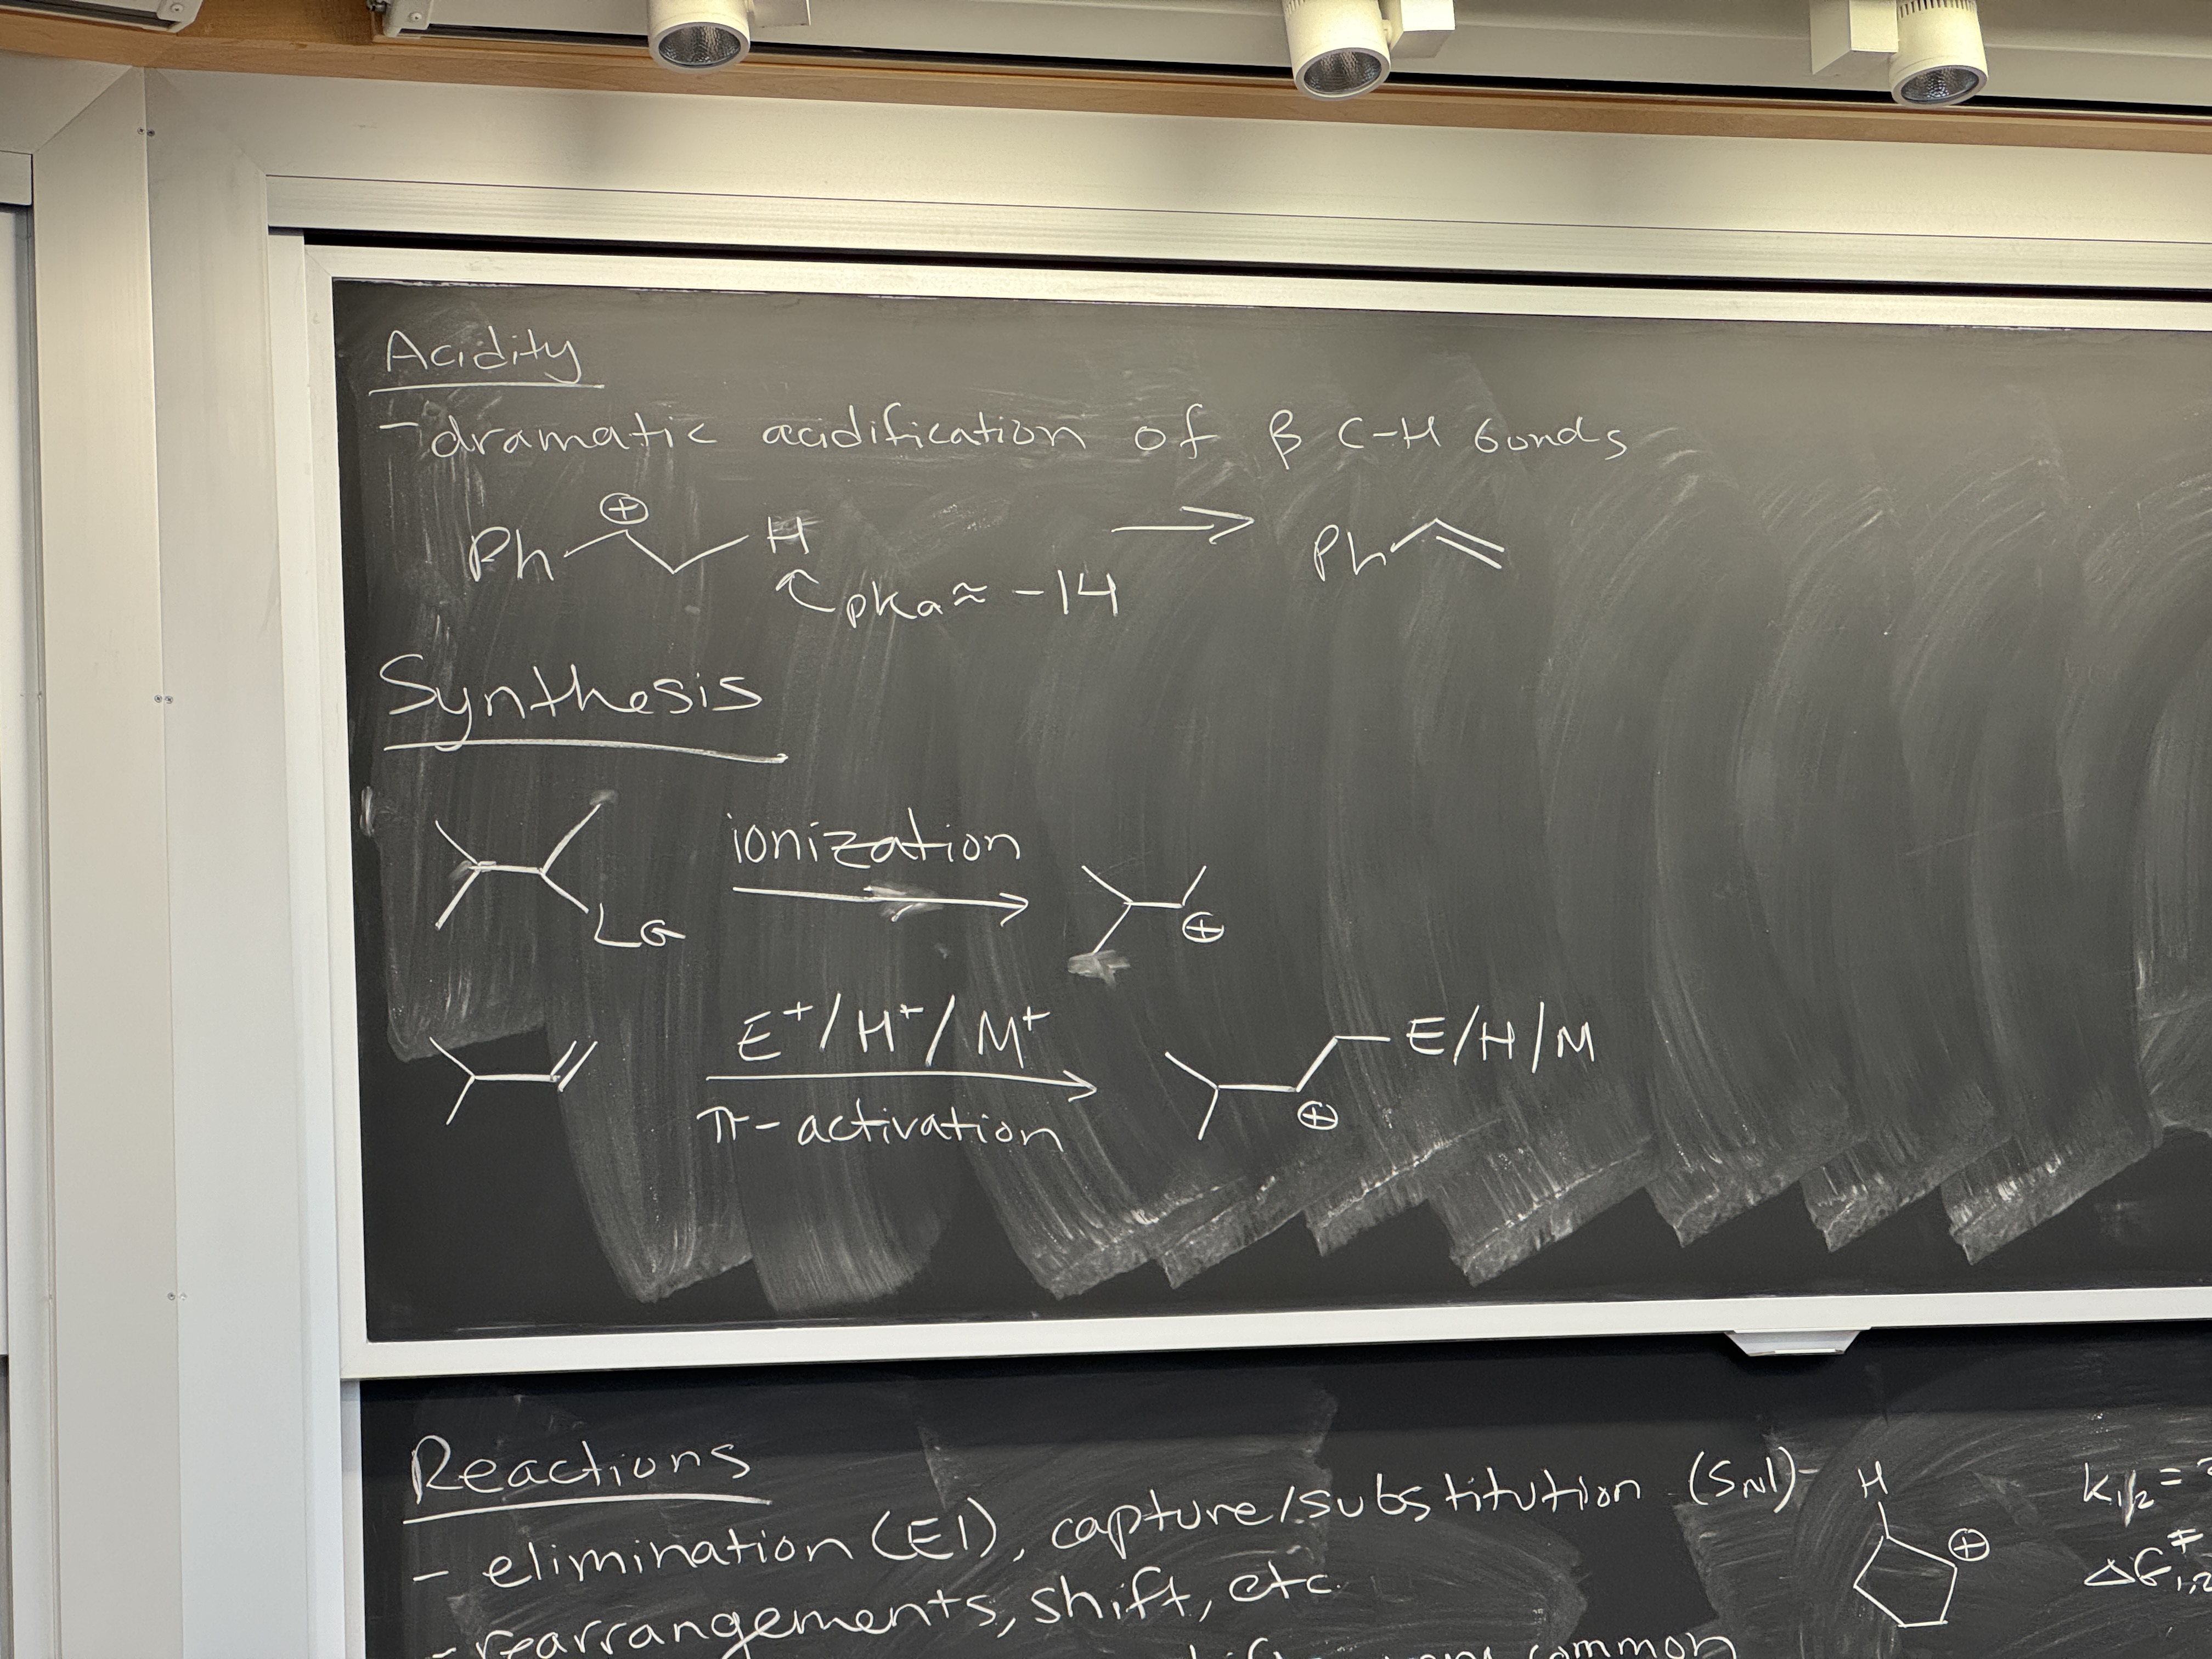 Acidity
- dramatic acidification of β C-H bonds
⊕
Ph H → Ph
pKa ≈ -14
Synthesis
ionization
LG ⊕
E⁺/H⁺/M⁺ E/H/M
π-activation ⊕
Reactions
- elimination (E1), capture/substitution (SN1)- H k1/2 =
⊕ ΔG‡1,2
- rearrangements, shift, etc.
common